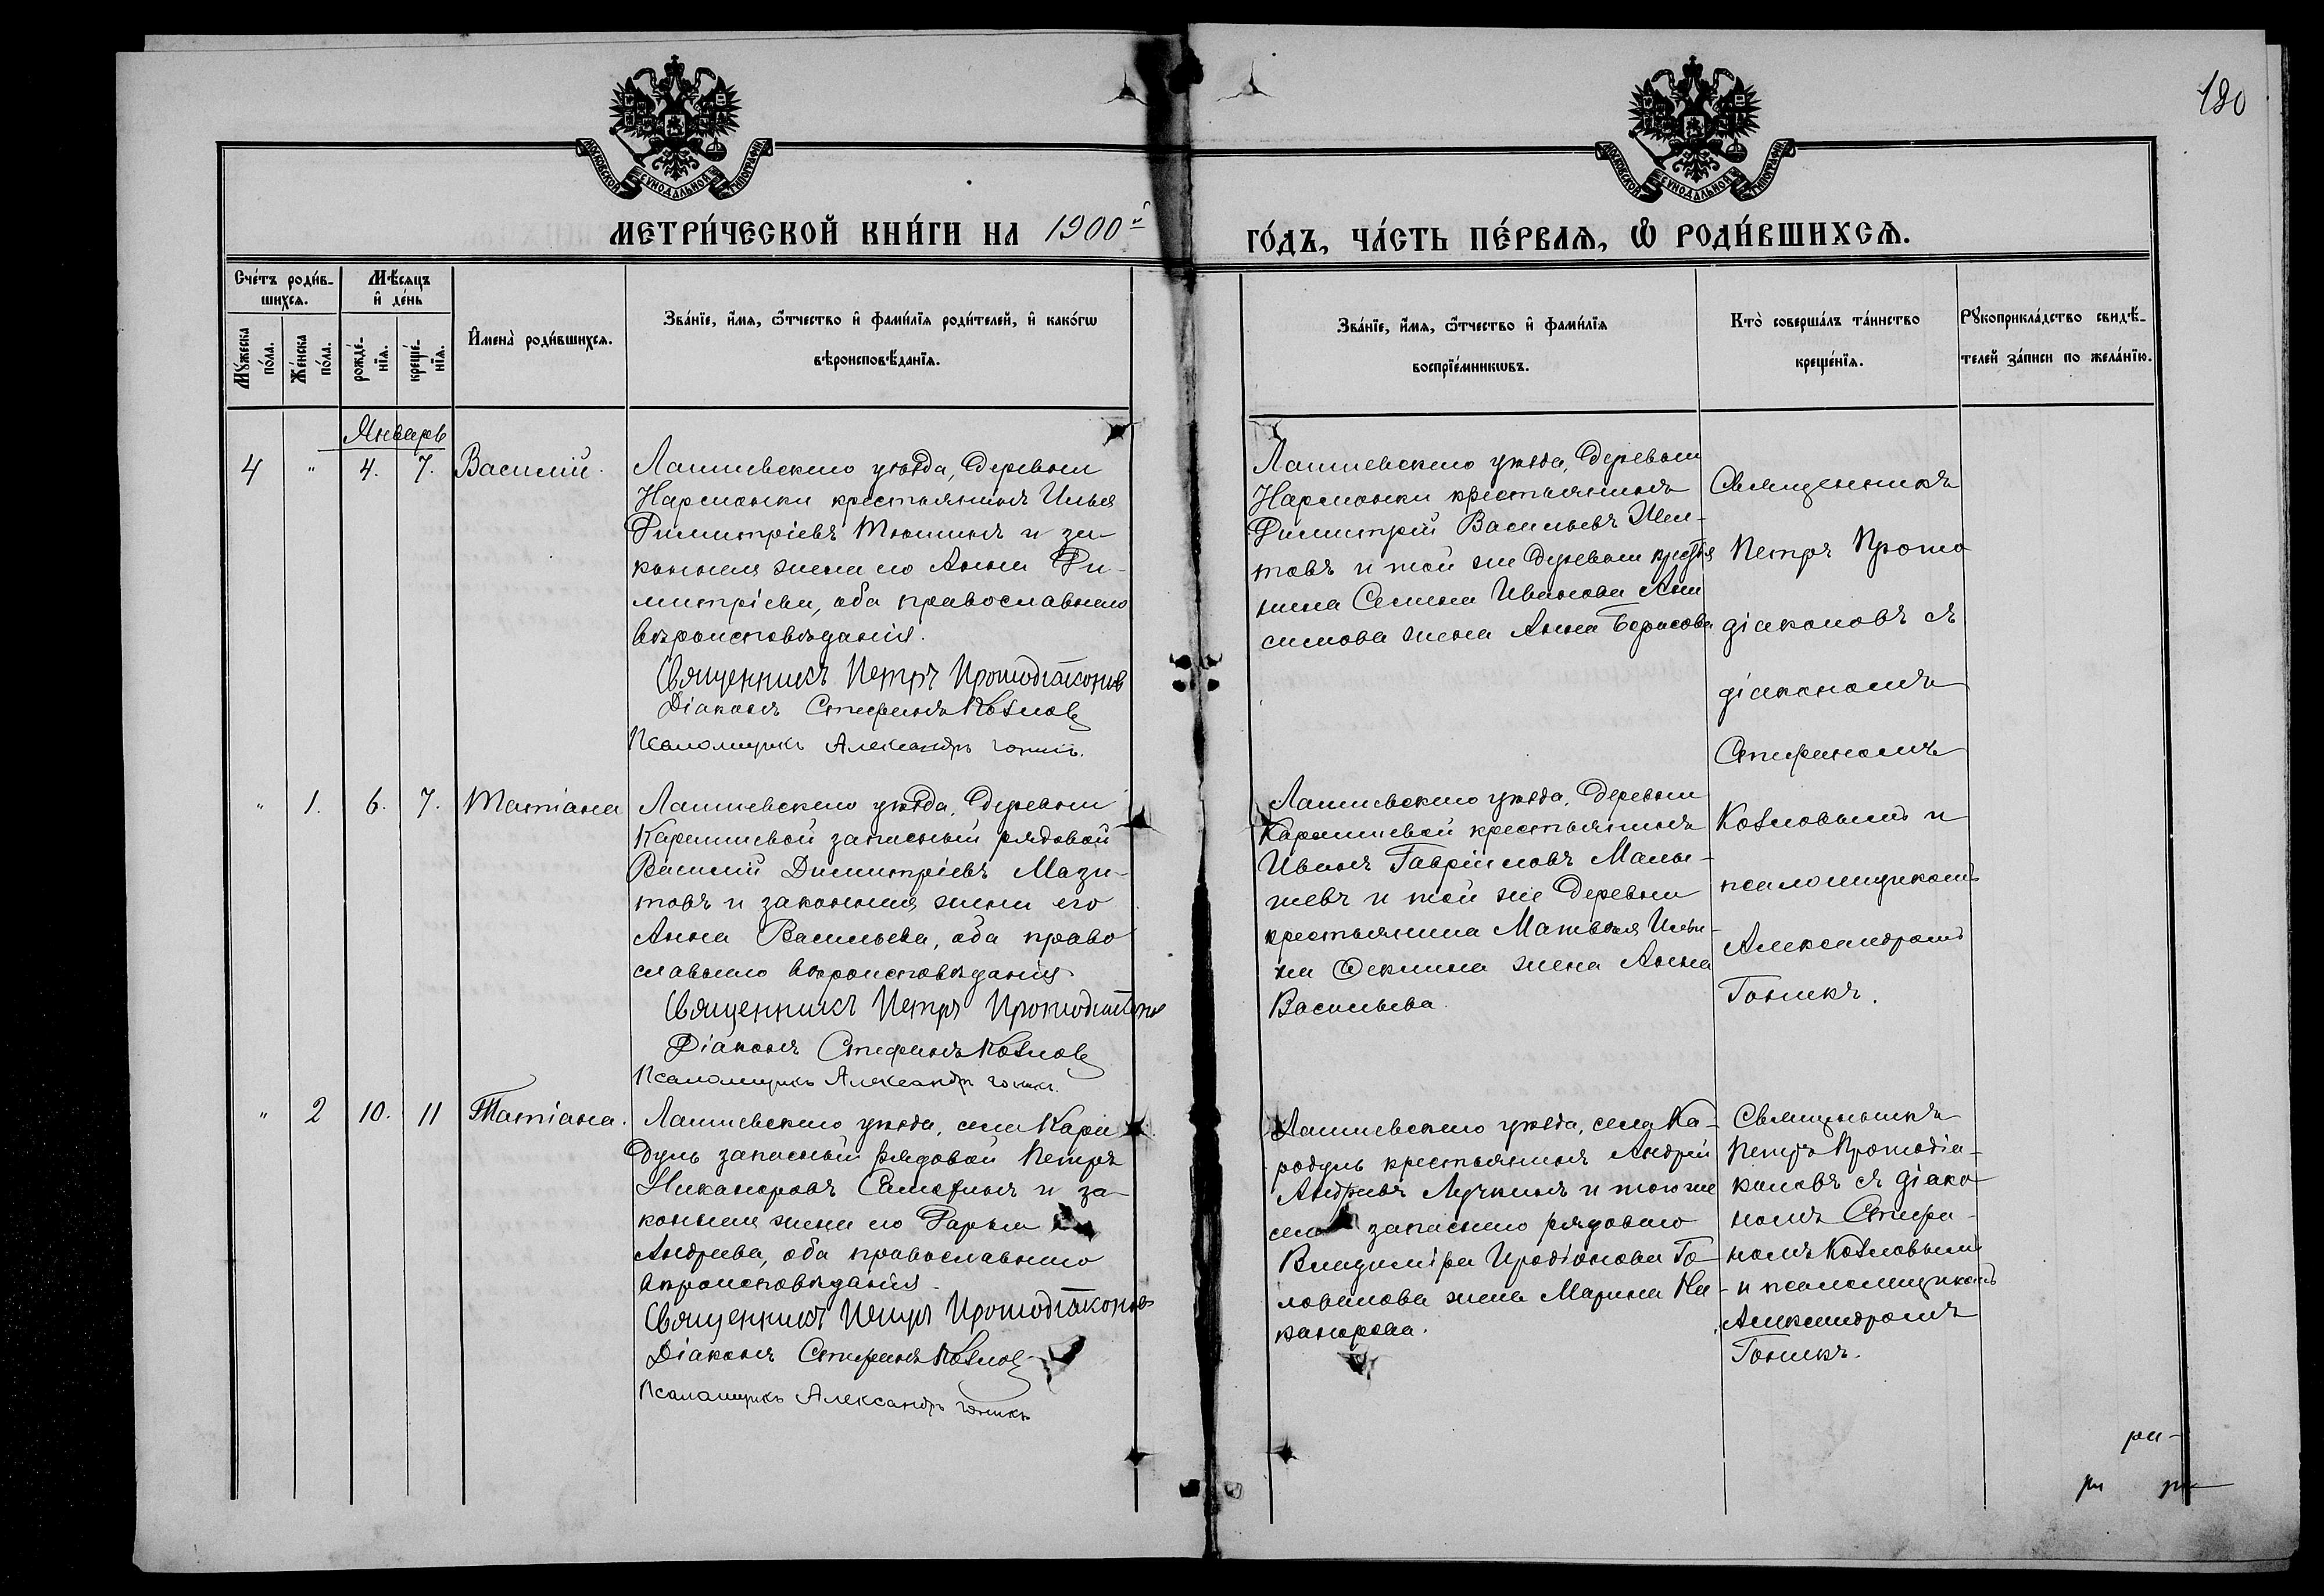 180
МОСКОВСКОЙ СѴНОДАЛЬНОЙ ТИПОГРАФІИ
МОСКОВСКОЙ СѴНОДАЛЬНОЙ ТИПОГРАФІИ
МЕТРИ́ЧЕСКОЙ КНИ́ГИ НА 1900й
ГО́ДЪ, ЧА́СТЬ ПЕ́РВАѦ, Ѡ҆ РОДИ́ВШИХСѦ.
Сче́тъ роди́в-
шихсѧ.
Мꙋ́жеска
по́ла.
Же́нска
по́ла.
Мѣ́сѧцъ
и҆ де́нь
рожде́-
нїѧ.
креще́-
нїѧ.
И҆мена̀ роди́вшихсѧ.
Зва́нїе, и҆́мѧ, ѻ҆́тчество и҆ фами́лїѧ роди́телей, и҆ како́гѡ
вѣроисповѣ́данїѧ.
Зва́нїе, и҆́мѧ, ѻ҆́тчество и҆ фами́лїѧ
воспрїе́мникѡвъ.
Кто̀ соверша́лъ та́инство
креще́нїѧ.
Рꙋкоприкла́дство свидѣ́-
телей за́писи по жела́нїю.
Январь
4 " 4. 7. Василій.
Лаишевскаго уѣзда, деревни
Нармонки крестьянинъ Илья
Димитріевъ Тюминъ и за-
конная жена его Анна Ди-
митріева, оба православнаго
вѣроисповѣданія.
Священникъ Петръ Протодіаконов
Діаконъ Стефанъ Козлов
Псаломщикъ Александръ Гоникъ.
Лаишевскаго уѣзда, деревни
Нармонки крестьянинъ
Димитрій Васильевъ
товъ и той же деревни крестья
нина Семена Иванова Ани
симова жена Анна Борисова
Священникъ
Петръ Прото
діаконовъ съ
діакономъ
Стефаномъ
Козловымъ и
псаломщикомъ
Александромъ
Гоникъ.
" 1. 6. 7. Татіана
Лаишевскаго уѣзда, деревни
Караишевой запасный рядовой
Василій Димитріевъ Мази-
товъ и законная жена его
Анна Васильева, оба право
славнаго вѣроисповѣданія
Священникъ Петръ Протодіаконов
Діаконъ Стефанъ Козлов
Псаломщикъ Александръ Гоникъ.
Лаишевскаго уѣзда, деревни
Караишевой крестьянинъ
Иванъ Гавріиловъ Малы-
шевъ и той же деревни
крестьянина Матвѣя Ильи-
на Ѳекина жена Анна
Васильева.
" 2 10. 11 Татіана.
Лаишевскаго уѣзда, села Кара
дуль запасный рядовой Петръ
Никаноровъ Самохинъ и за-
конная жена его Дарья
Андреева, оба православнаго
вѣроисповѣданія.
Священникъ Петръ Протодіаконов
Діаконъ Стефанъ Козлов
Псаломщикъ Александръ Гоникъ
Лаишевскаго уѣзда, села Ка-
радуль крестьянинъ Андрей
Андреевъ Лучкинъ и того же
села запаснаго рядоваго
Владиміра Иродіонова Го
лованова жена Марина Ни-
канорова.
Священникъ
Петръ Протодіа-
коновъ съ діако
номъ Стефа-
номъ Козловымъ
и псаломщикомъ
Александромъ
Гоникъ.